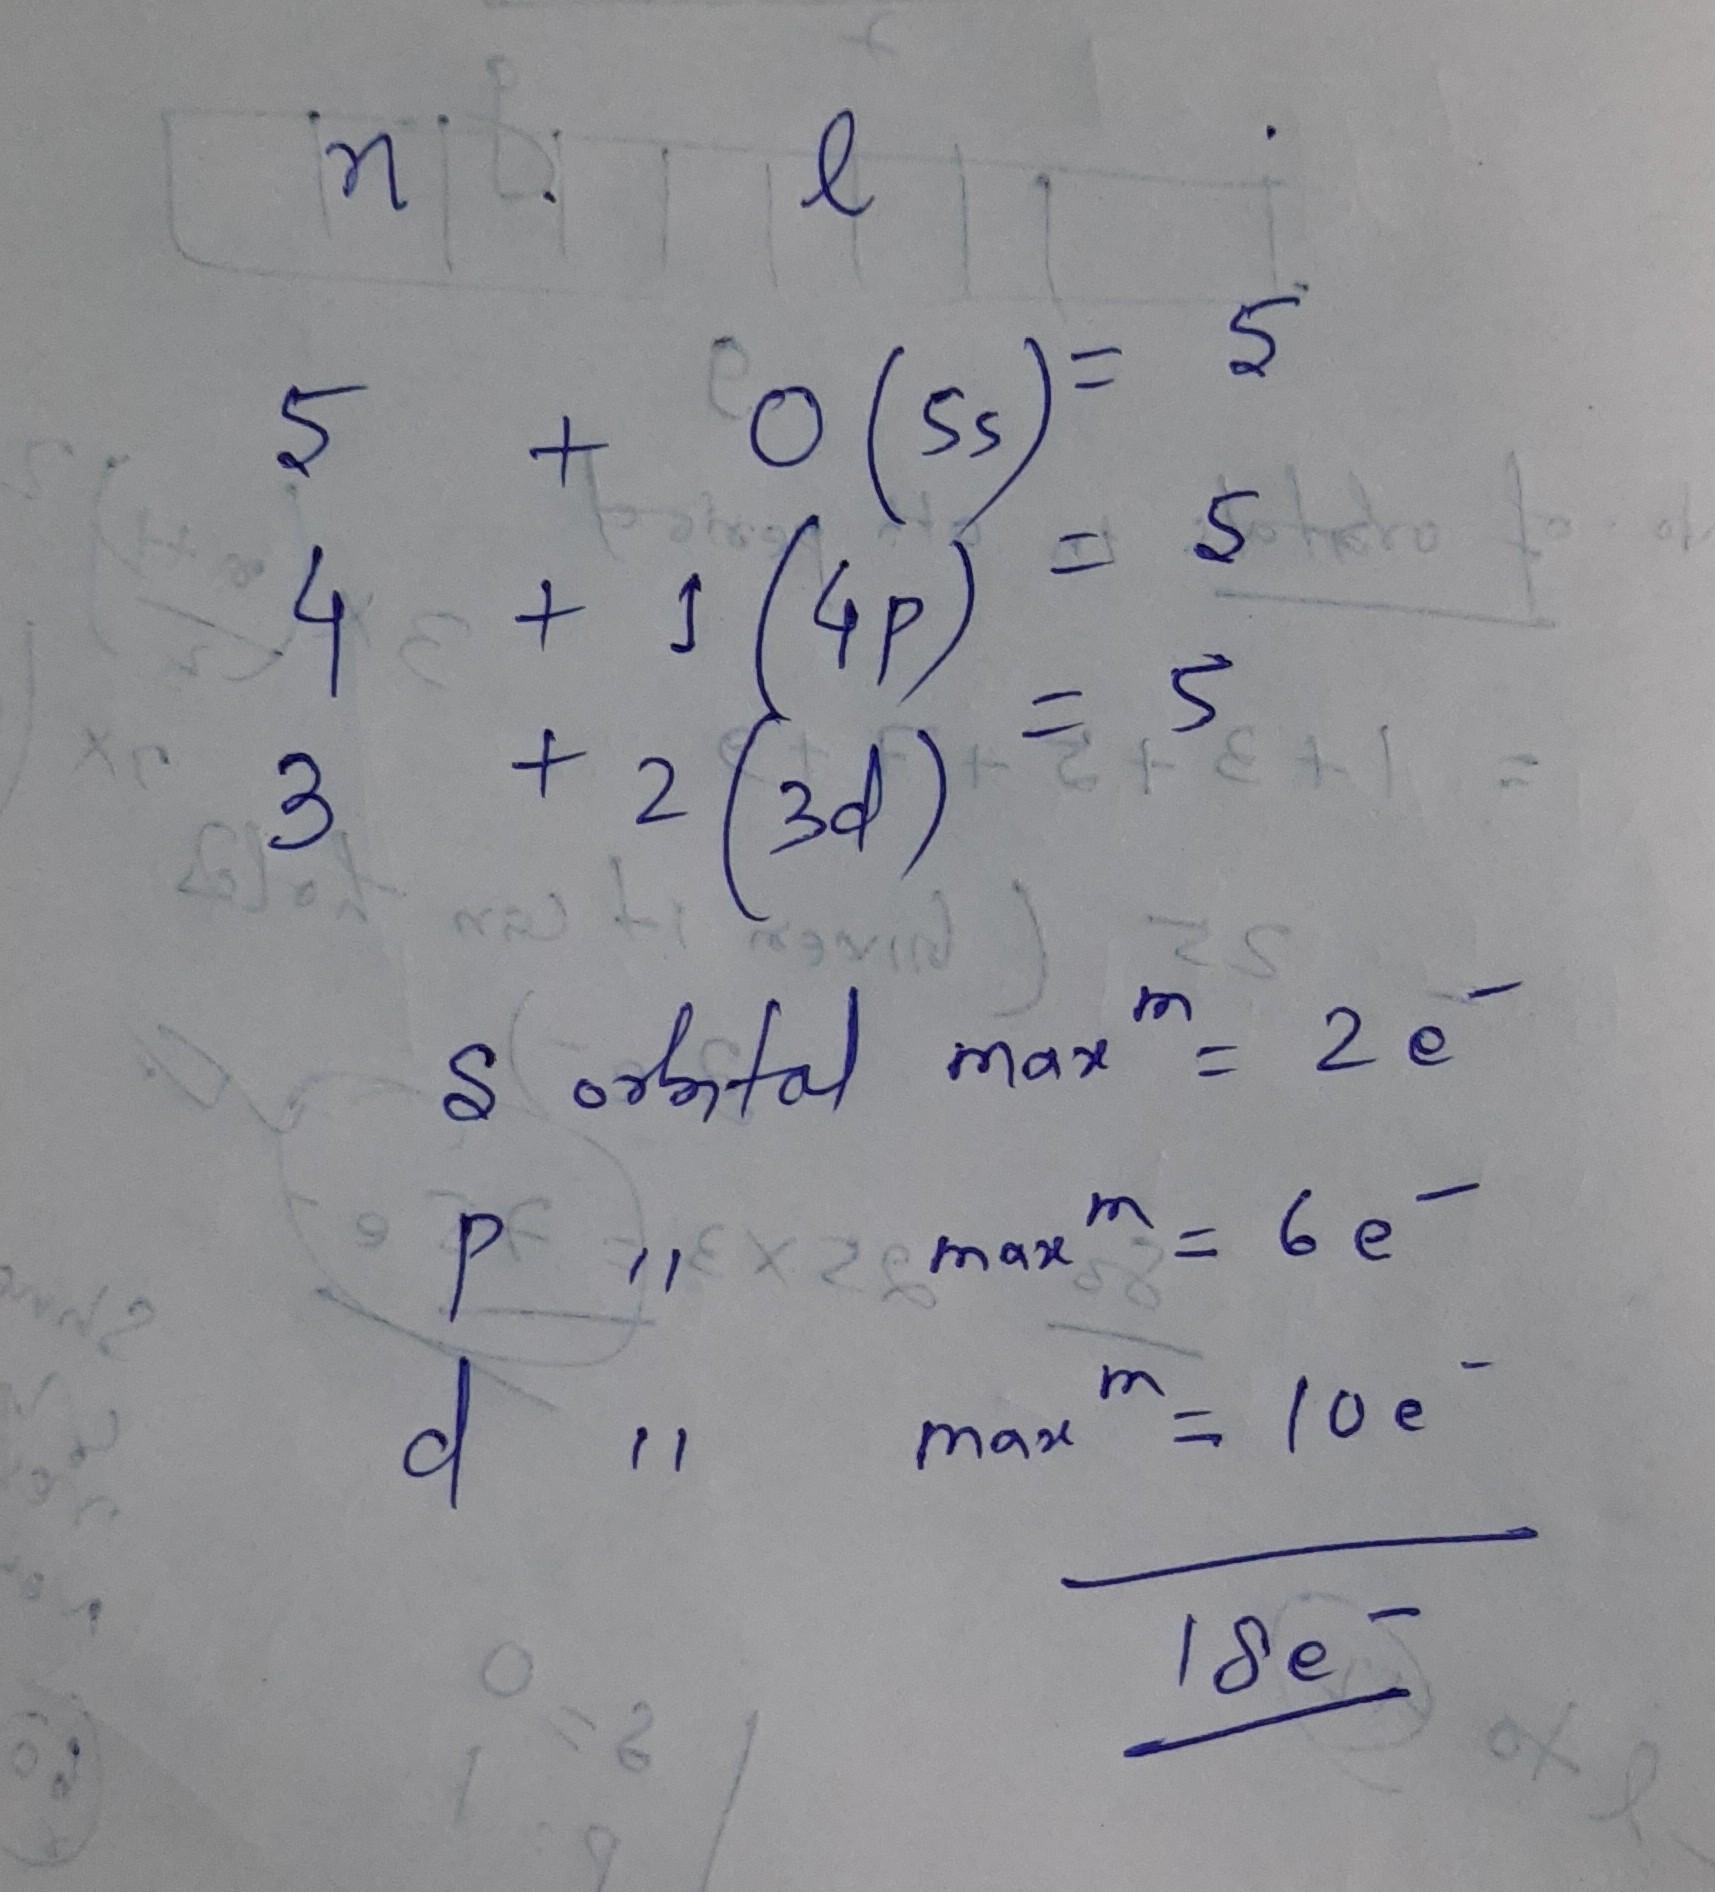 n l
5 + 0 (5s) = 5
4 + 1 (4p) = 5
3 + 2 (3d) = 5
s orbital maxᵐ = 2e⁻
p " maxᵐ = 6e⁻
d " maxᵐ = 10e⁻
18e⁻